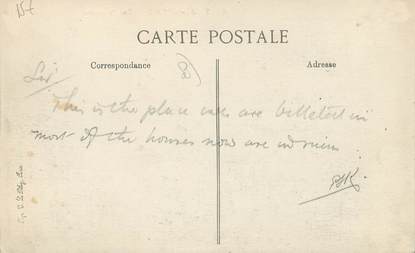 15f
CARTE POSTALE
Correspondance
Adresse
Sis/
This is the place we are billeted in
most of the houses now are in ruins